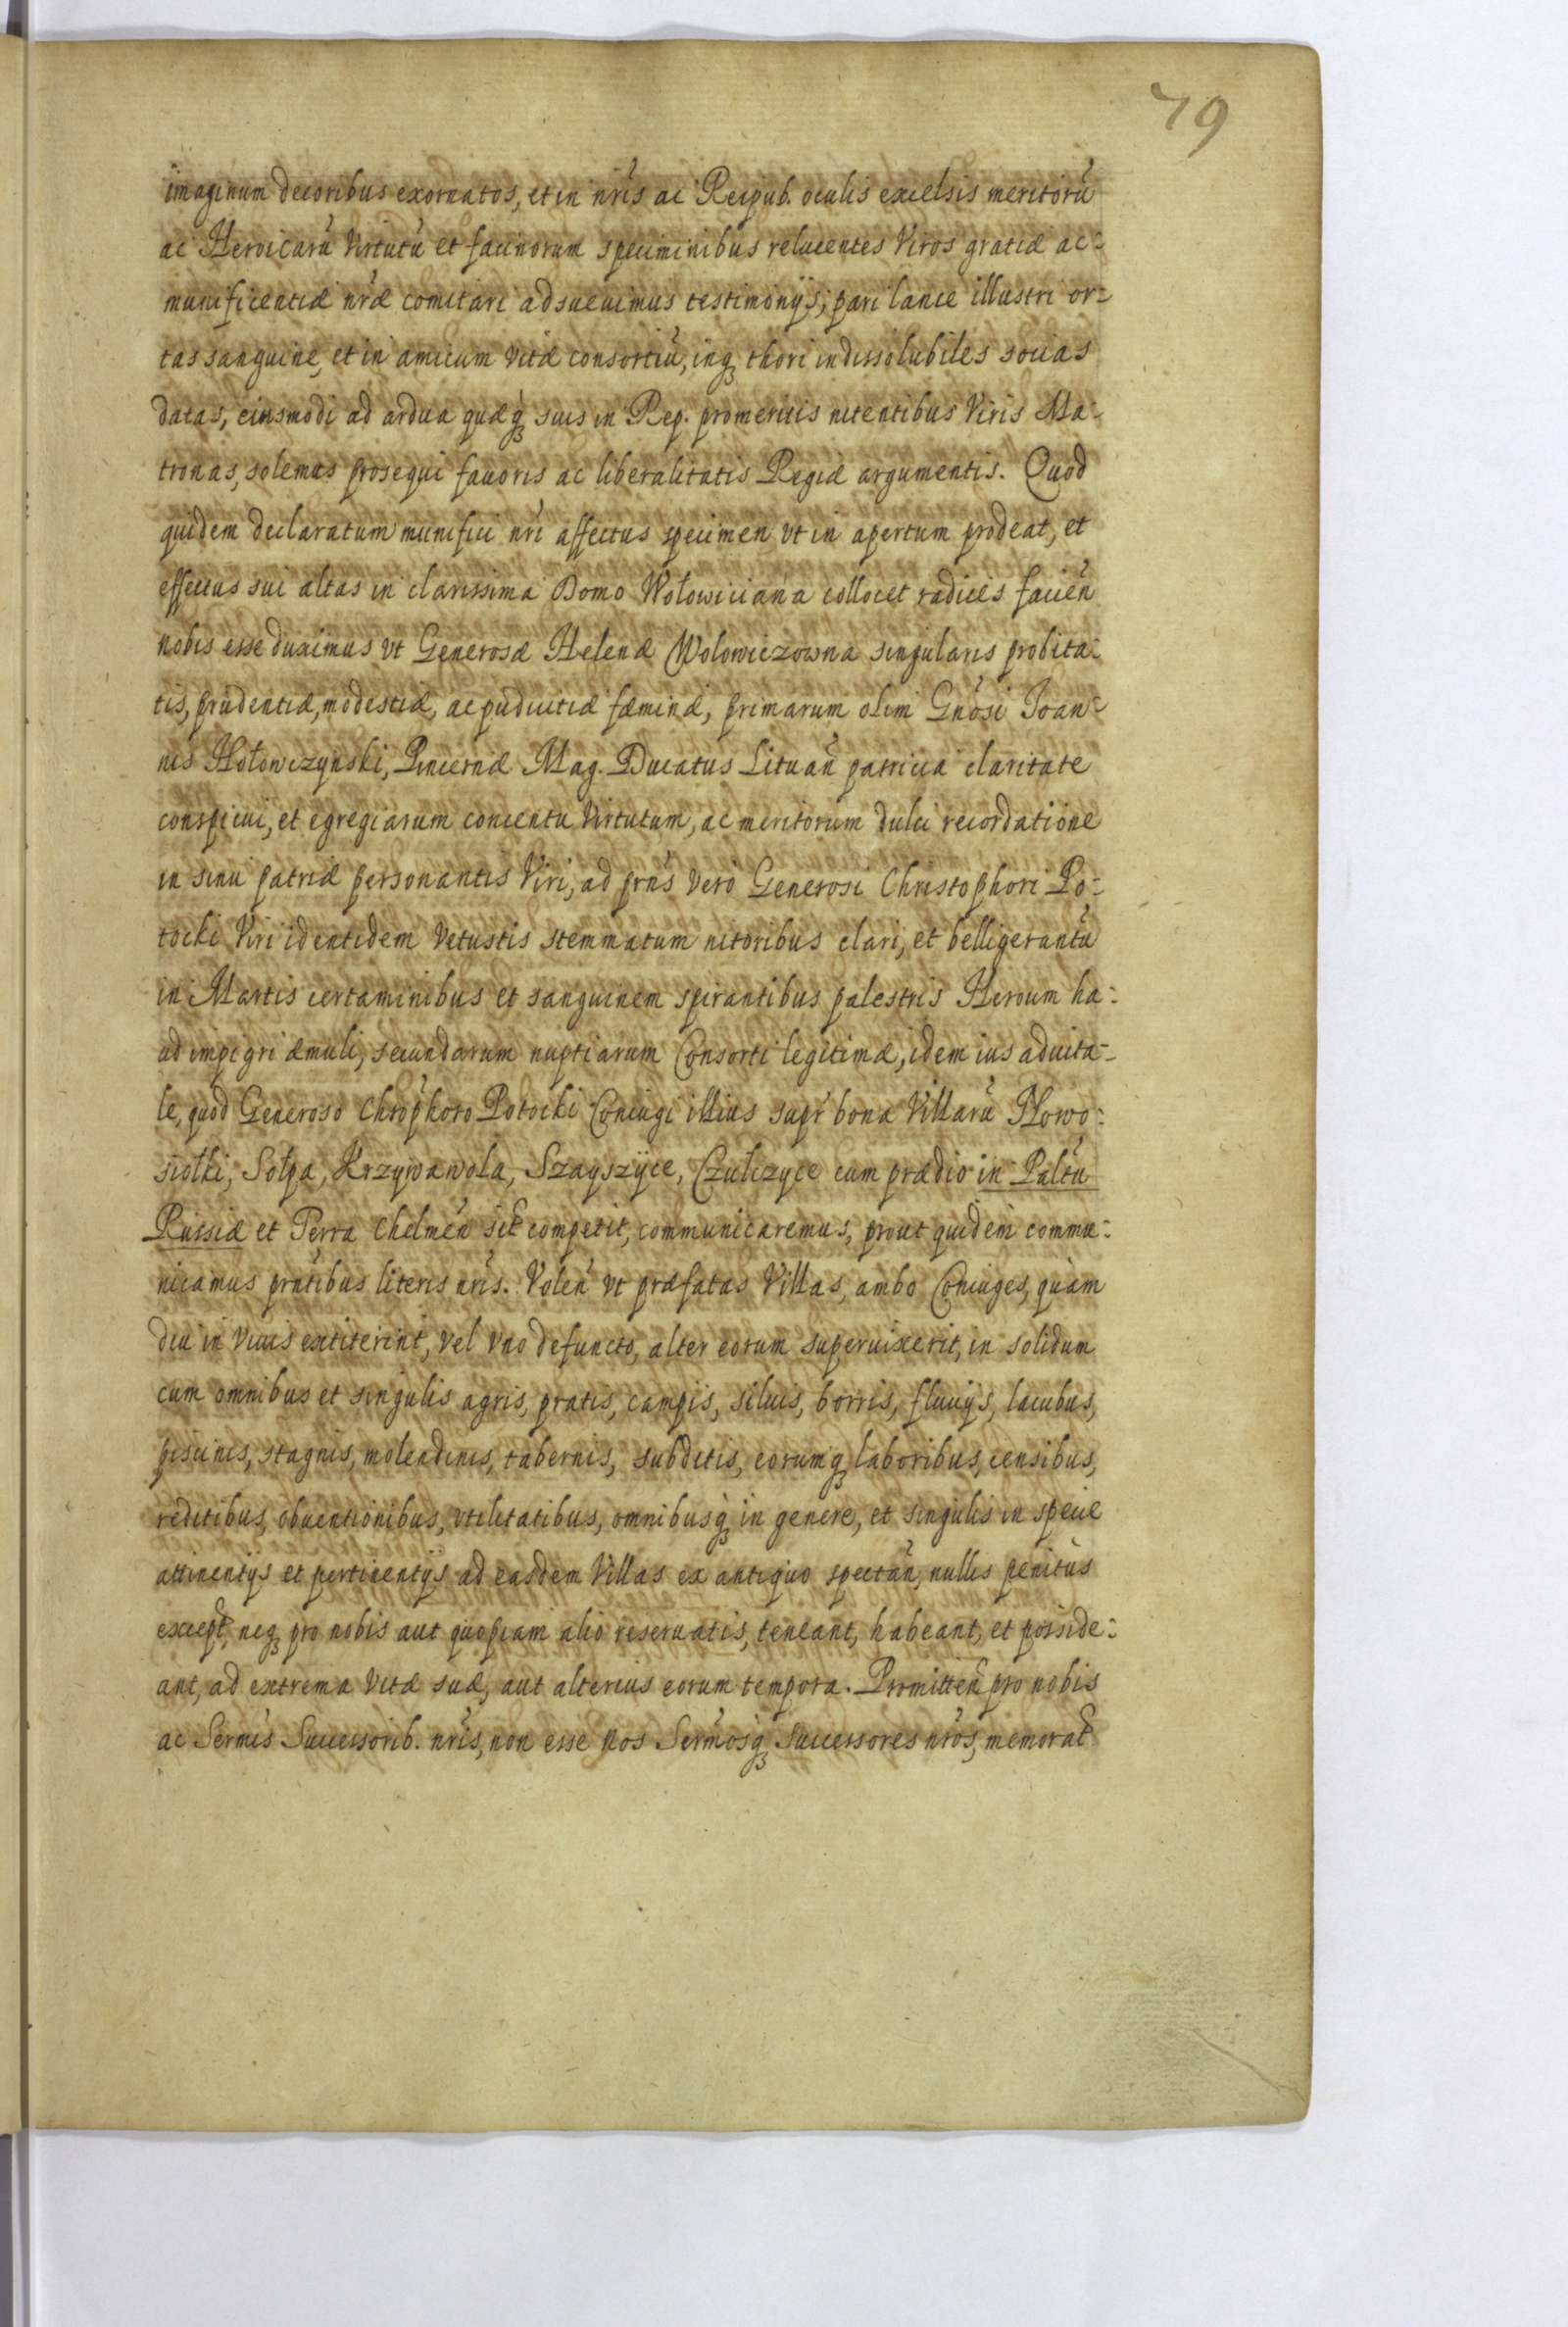 79
imaginum decoribus exornatos, et in nr̃is ac Reipub. oculis excelsis meritorũ
ac Heroicarũ Virtutũ et facinorum speciminibus relucentes Viros gratiæ ac-
munificentiæ nr̃æ comitari adsueuimus testimonijs, pari lance illustri or-
tas sanguine, et in amicum Vitæ consortiũ, inq₃ thori indissolubiles socias
datas, eiusmodi ad ardua quæq₃ suis in Rep. promeritis nitentibus Viris Ma-
tronas, solemus prosequi fauoris ac liberalitatis Regiæ argumentis. Quod
quidem declaratum munifici nr̃i affectus specimen vt in apertum prodeat, et
effectus sui altas in clarissima Domo Wołowiciana collocet radices facień
nobis esse duximus vt Generosæ Helenæ Wolowiczowna singularis probita-
tis, prudentiæ, modestiæ, ac pudicitiæ fæminæ, primarum olim Gnõsi Ioan-
nis Hołowczynski, Pincernæ Mag. Ducatus Lituañ patricia claritate
conspicui, et egregiarum concentu Virtutum, ac meritorum dulci recordatione
in sinu patriæ personantis Viri, ad prñs Vero Generosi Christophori Po-
tocki Viri identidem Vetustis stemmatum nitoribus clari, et belligerantũ
in Martis certaminibus et sanguinem spirantibus palestris Heroum ha-
ud impigri æmuli, secundarum nuptiarum Consorti legitimæ, idem ius aduita-
le, quod Generoso Chrõphoro Potocki Coniugi illius supr̃ bona Villarũ Nowo-
siołki, Sołpa, Krzywawola, Szayszyce, Czulczyce cum prædio in Paltũ
Russiæ et Terra Chelmeñ sit̃ competit, communicaremus, prout quidem commu-
nicamus prñtibus literis nr̃is. Voleñ vt præfatas Villas, ambo Coniuges, quàm
diu in viuis extiterint, vel vno defuncto, alter eorum superuixerit, in solidum
cum omnibus et singulis agris, pratis, campis, siluis, borris, fluuijs, lacubus,
piscinis, stagnis, molendinis, tabernis, subditis, eorumq₃ laboribus, censibus,
reditibus, obuentionibus, vtilitatibus, omnibusq₃ in genere, et singulis in specie
attinentijs et pertinentijs ad easdem Villas ex antiquo spectañ, nullis penitùs
except̃, neq₃ pro nobis aut quopiam alio reseruatis, teneant, habeant, et posside-
ant, ad extrema vitæ suæ, aut alterius eorum tempora. Promitteñ pro nobis
ac Serm̃is Successorib. nr̃is, non esse nos Serm̃osq₃ Successores nr̃os, memorat̃